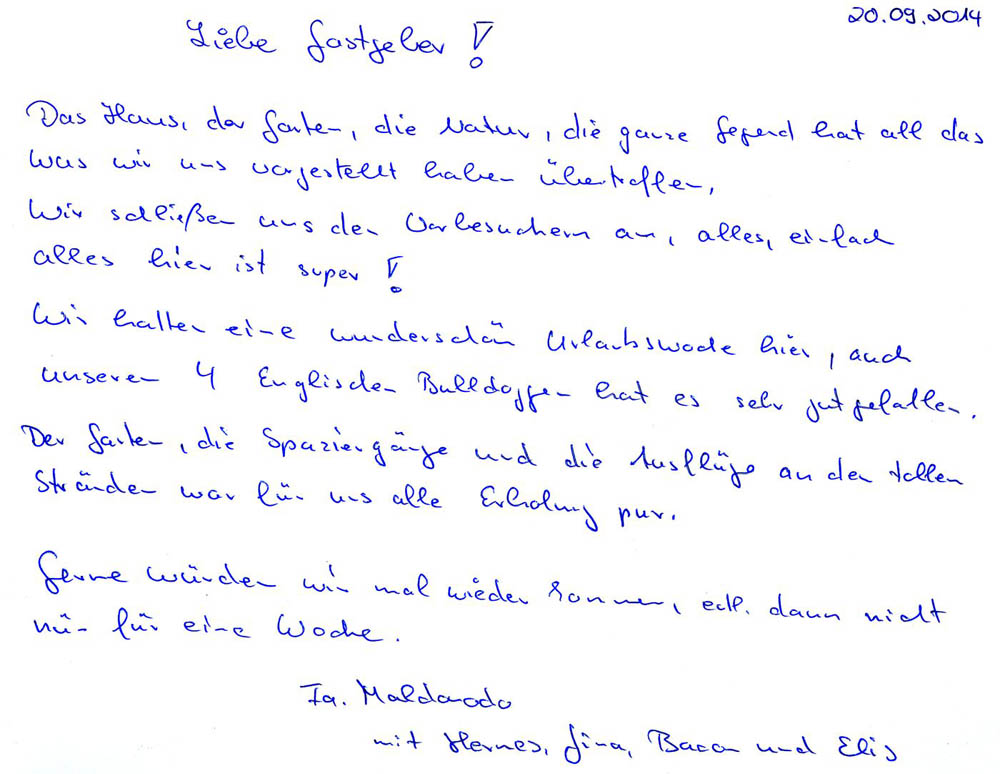 20.09.2014
Liebe Gastgeber!
Das Haus, der Garten, die Natur, die ganze Gegend hat all das
was wir uns vorgestellt haben übertroffen,
Wir schließen uns den Vorbesuchern an, alles, einfach
alles hier ist super!
Wir hatten eine wunderschön Urlaubswoche hier, auch
unseren 4 Englischen Bulldoggen hat es sehr gut gefallen.
Der Garten, die Spaziergänge und die Ausflüge an den tollen
Stränden war für uns alle Erholung pur.
Gerne würden wir mal wieder kommen, evtl. dann nicht
nur für eine Woche.
Fa. Maldonado
mit Hermes, Gina, Bacon und Elis